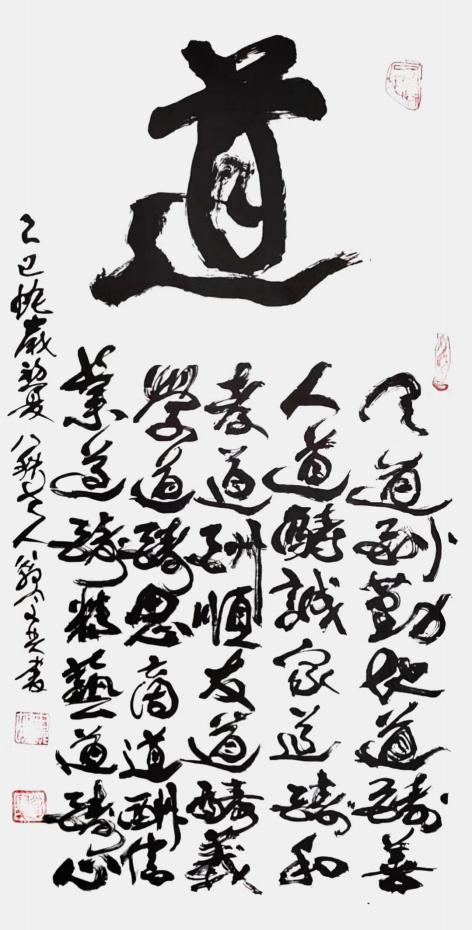 道
天道酬勤地道酬善
人道醻誠家道酬和
孝道酬順友道醻義
學道酬思商道酬信
業道酬精藝道酬心
乙巳蛇歲初夏八老人翁書